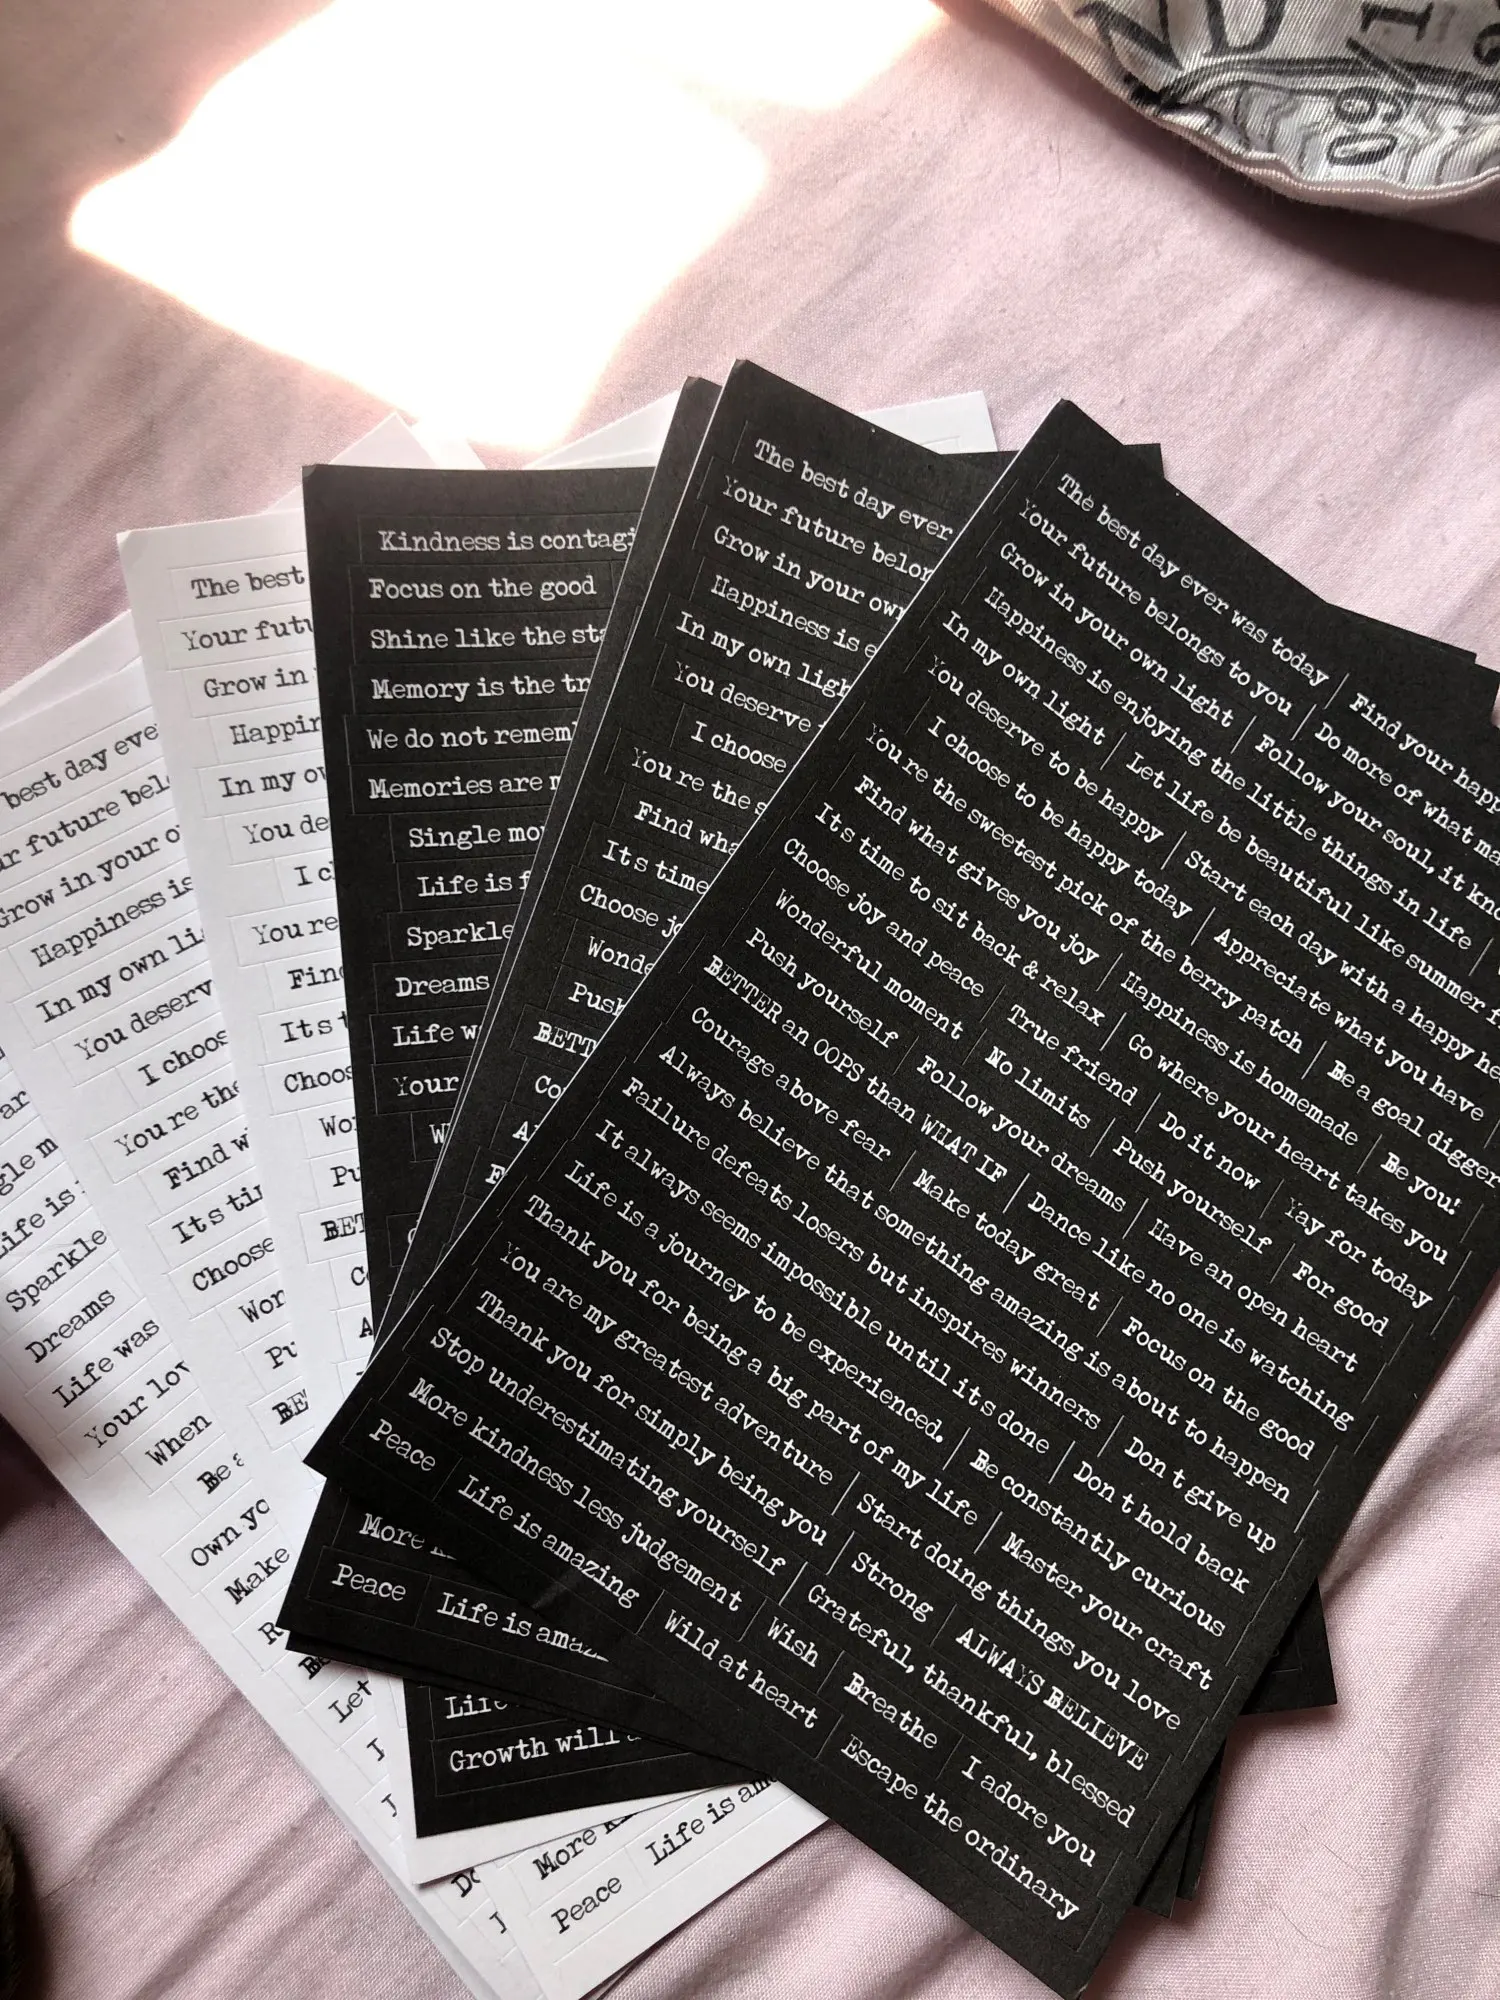 The best day ever was today Find your happ
Your future belongs to you Do more of what ma
Grow in your own light Follow your soul, it kno
Happiness is enjoying the little things in life
In my own light Let life be beautiful like summer f
You deserve to be happy Start each day with a happy he
I choose to be happy today Appreciate what you have
You're the sweetest pick of the berry patch Be a goal digger
Find what gives you joy Happiness is homemade Be you!
Its time to sit back & relax Go where your heart takes you
Choose joy and peace True friend Do it now Yay for today
Wonderful moment No limits Push yourself For good
Push yourself Follow your dreams Have an open heart
BETTER an OOPS than WHAT IF Dance like no one is watching
Courage above fear Make today great Focus on the good
Always believe that something amazing is about to happen
Failure defeats losers but inspires winners Don t give up
It always seems impossible until its done Don t hold back
Life is a journey to be experienced. Be constantly curious
Thank you for being a big part of my life Master your craft
You are my greatest adventure Start doing things you love
Thank you for simply being you Strong ALWAYS BELIEVE
Stop underestimating yourself Grateful, thankful, blessed
More kindness less judgement Wish Breathe I adore you
Peace Life is amazing Wild at heart Escape the ordinary
The best day ever
Your future belon
Grow in your own
Happiness is e
In my own ligh
You deserve
I choose
You're the s
Find wha
Its time
Choose jo
Wonde
Push
BETT
Co
Al
F
More k
Peace Life is ama
Kindness is contagi
Focus on the good
Shine like the sta
Memory is the tr
We do not remem
Memories are m
Single mo
Life is f
Sparkle
Dreams
Life w
Your
W
Life
Growth will
The best
Your futu
Grow in
Happin
In my ow
You de
I ch
You're
Find
Its t
Choos
Wo
Pu
BET
Co
A
More k
Peace Life is am
best day eve
r future bel
Grow in your o
Happiness is
In my own li
You deserv
I choos
You're the
Find w
Its ti
Choose
Won
Pu
BE
gle m
Life is
Sparkle
Dreams
Life was
Your lov
When
Be a
Own yo
Make
R
Be
Let